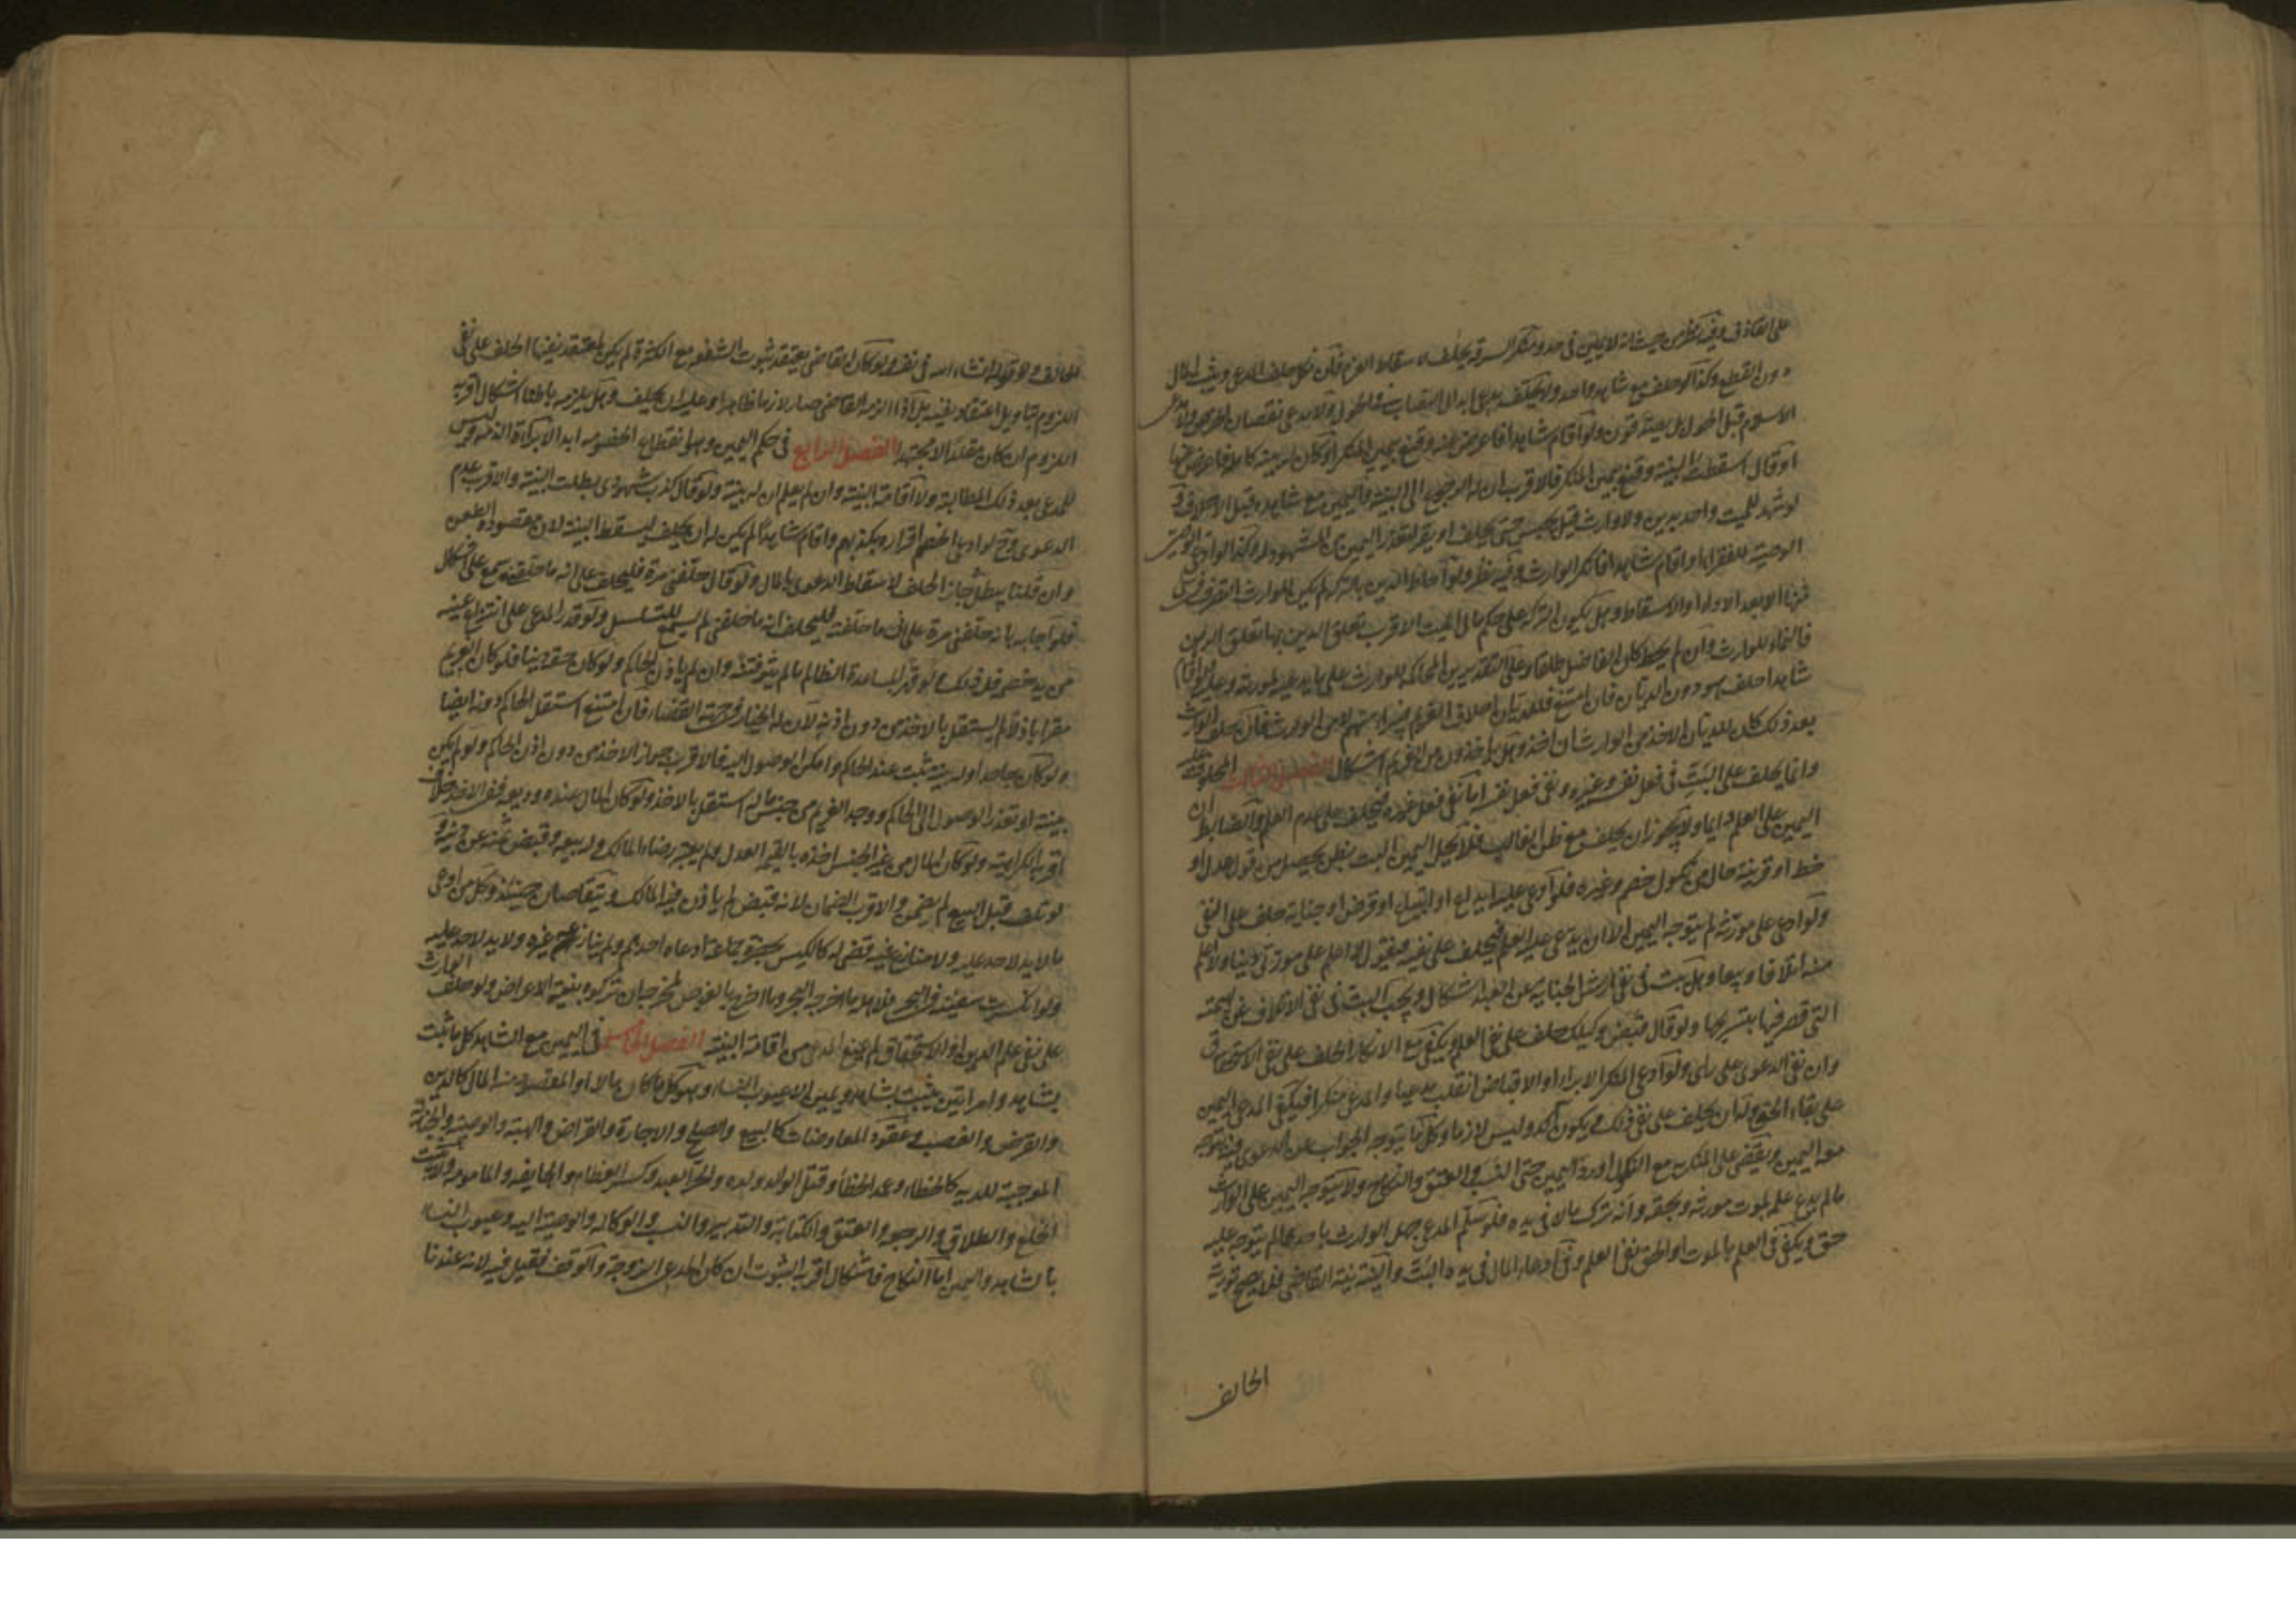 على القاذف وفيه نظر من حيث انه لا يمين في حد ومنكر السرقة يحلف لاسقاط الغرم فان نكل حلف المدعي ويثبت المال
دون القطع وكذا لو حلف مع شاهد واحد ولا يحلف مدعي ابدال النصاب في الحول ولا مدعي نقصان الخرص ولا مدعي
الاسلام قبل الحول بل يصدقون ولو اقام شاهدا فاعرض عنه وقنع بيمين المنكر او كان له بينة كاملة فاعرض عنها
او قال اسقطت البينة وقنع بيمين المنكر فالاقرب ان له الرجوع الى البينة واليمين مع شاهده قبل الاحلاف و
لو شهد للميت واحد بدين ولا وارث قيل يحبس حتى يحلف او يقر لتعذر اليمين من المشهود له وكذا لو ادعى الوصي
الوصية للفقراء واقام شاهدا فانكر الوارث وفيه نظر ولو احاط الدين بالتركة لم يكن للوارث التصرف في شيء
منها الا بعد الاداء او الاسقاط وهل يكون التركة على حكم مال الميت الاقرب تعلق الدين بها تعلق الرهن
فالنماء للوارث وان لم يحط كان الفاضل طلقا وعلى التقديرين المحاكمة للوارث على ما يدعيه لمورثه وعليه ولو اقام
شاهدا حلف هو دون الديان فان امتنع فللديان احلاف الغريم فيبرأ منهم لا من الوارث فان حلف الوارث
بعد ذلك كان للديان الاخذ من الوارث ان اخذ وهل ياخذون من الغريم اشكال الفصل الثالث المحلوف عليه
وانما يحلف على البت في فعل نفسه وغيره ونفي فعل نفسه اما نفي فعل غيره فيحلف على عدم العلم والضابط ان
اليمين على العلم دايما ولا يجوز ان يحلف مع ظن الغالب فلا يحل اليمين البت بظن يحصل من قول عدل او
خط او قرينة حال من نكول خصم وغيره فلو ادعى عليه ايداع او ابتياع او قرض او جناية حلف على النفي
ولو ادعى على مورثه لم يتوجه اليمين الا ان يدعي عليه العلم فيحلف على نفيه فيقول لا اعلم على مورثي دينا ولا اعلم
منه اتلافا وبيعا وهل يثبت في نفي ارش الجناية عن العبد اشكال ويجب البت في نفي الاتلاف عن بهيمته
التي قصر فيها بتسريحها ولو قال قبض وكيلك حلف على نفي العلم ويكفي مع الانكار الحلف على نفي الاستحقاق
وان نفي الدعوى على راي ولو ادعى المنكر الابراء او الاقباض انقلب مدعيا والمدعي منكرا فيكفي المدعي اليمين
على بقاء الحق وله ان يحلف على نفي ذلك ويكون آكد وليس لازما وكل ما يتوجه الجواب عن الدعوى فيه يتوجه
معه اليمين ويقضى على المنكر به مع النكول او رد اليمين حتى النسب والعتق والنكاح ولا يتوجه اليمين على الوارث
ما لم يدع علمه بموت مورثه وبحقه وانه ترك مالا في يده فلو سلم المدعي جهل الوارث باحدها لم يتوجه عليه
حق ويكفي في العلم بالموت او الحق نفي العلم وفي ادعاء المال في يده البت والنية نية القاضي فلا يصح تورية
الحالف
الحالف ولا قوله ان شاء الله في نفسه ولو كان القاضي يعتقد ثبوت الشفعة مع الكثرة لم يكن لمعتقد نفيها الحلف على نفي
اللزوم بتاويل اعتقاد نفيه بل اذا الزمه القاضي صار لازما ظاهرا وعليه ان يحلف وهل يلزمه باطنا اشكال اقربه
اللزوم ان كان مقلدا لا مجتهدا الفصل الرابع في حكم اليمين وهو انقطاع الخصومة ابدا لا براءة الذمة وليس
للمدعي بعد ذلك المطالبة ولا اقامة البينة وان لم يعلم ان له بينة ولو قال كذب شهودي بطلت البينة والاقرب عدم
الدعوى فح لو ادعى الخصم اقراره بكذبهم واقام شاهدا لم يكن له ان يحلف ليسقط البينة لان مقصوده الطعن
وان قلنا يبطل جاز الحلف لاسقاط الدعوى بالمال ولو قال حلفني مرة فليحلف على انه ما حلفني سمع على اشكال
فلو اجابه بانه حلفني مرة على اني ما حلفته فليحلف انه ما حلفني لم يسمع للتسلسل ولو قدر المدعي على انتزاع عينه
من يد خصمه فله ذلك ولو قهرا بمساعدة الظالم ما لم يثر فتنة وان لم ياذن الحاكم ولو كان حقه دينا فلو كان الغريم
مقرا باذلا لم يستقل بالاخذ من دون اذنه لان له الخيار في جهة القضاء فان امتنع استقل الحاكم دونه ايضا
ولو كان جاحدا وله بينة تثبت عند الحاكم وامكن الوصول اليه فالاقرب جواز الاخذ من دون اذن الحاكم ولو لم يكن
بينة او تعذر الوصول الى الحاكم ووجد الغريم من جنس ماله استقل بالاخذ ولو كان المال عنده وديعة ففي الاخذ خلاف
اقربه الكراهية ولو كان المال من غير الجنس اخذه بالقيمة العدل ولم يعتبر رضاء المالك وله بيعه وقبض ثمنه عن دينه و
لو تلف قبل البيع لم يضمن والاقرب الضمان لانه قبض لم ياذن فيه المالك ويتقاصان حينئذ وكل من ادعى
ما لا يد لاحد عليه ولا منازع فيه قضي له كالكيس بحضرة جماعة ادعاه احدهم ولم ينازعه غيره ولا يد لاحد عليه
ولو انكسرت سفينة في البحر فلاهله ما اخرجه البحر وما اخرج بالغوص لمخرجه ان تركوه بنية الاعراض ولو حلف الوارث
على نفي علم الدين او الاستحقاق لم يمنع المدعي من اقامة البينة الفصل الخامس في اليمين مع الشاهد كل ما يثبت
بشاهد وامراتين يثبت بشاهد ويمين الا عيوب النساء وهو كل ما كان مالا او المقصود منه المال كالدين
والقرض والغصب وعقود المعاوضات كالبيع والصلح والاجارة والقراض والهبة والوصية والجناية
الموجبة للدية كالخطاء وعمد الخطأ وقتل الوالد ولده والحر العبد وكسر العظام والجايفة والمامومة ولا يثبت
الخلع والطلاق والرجعة والعتق والكتابة والتدبير والنسب والوكالة والوصية اليه وعيوب النساء
بالشاهد واليمين اما النكاح فاشكال اقربه الثبوت ان كان المدعي الزوجة والوقف فقيل فيه لانه عندنا